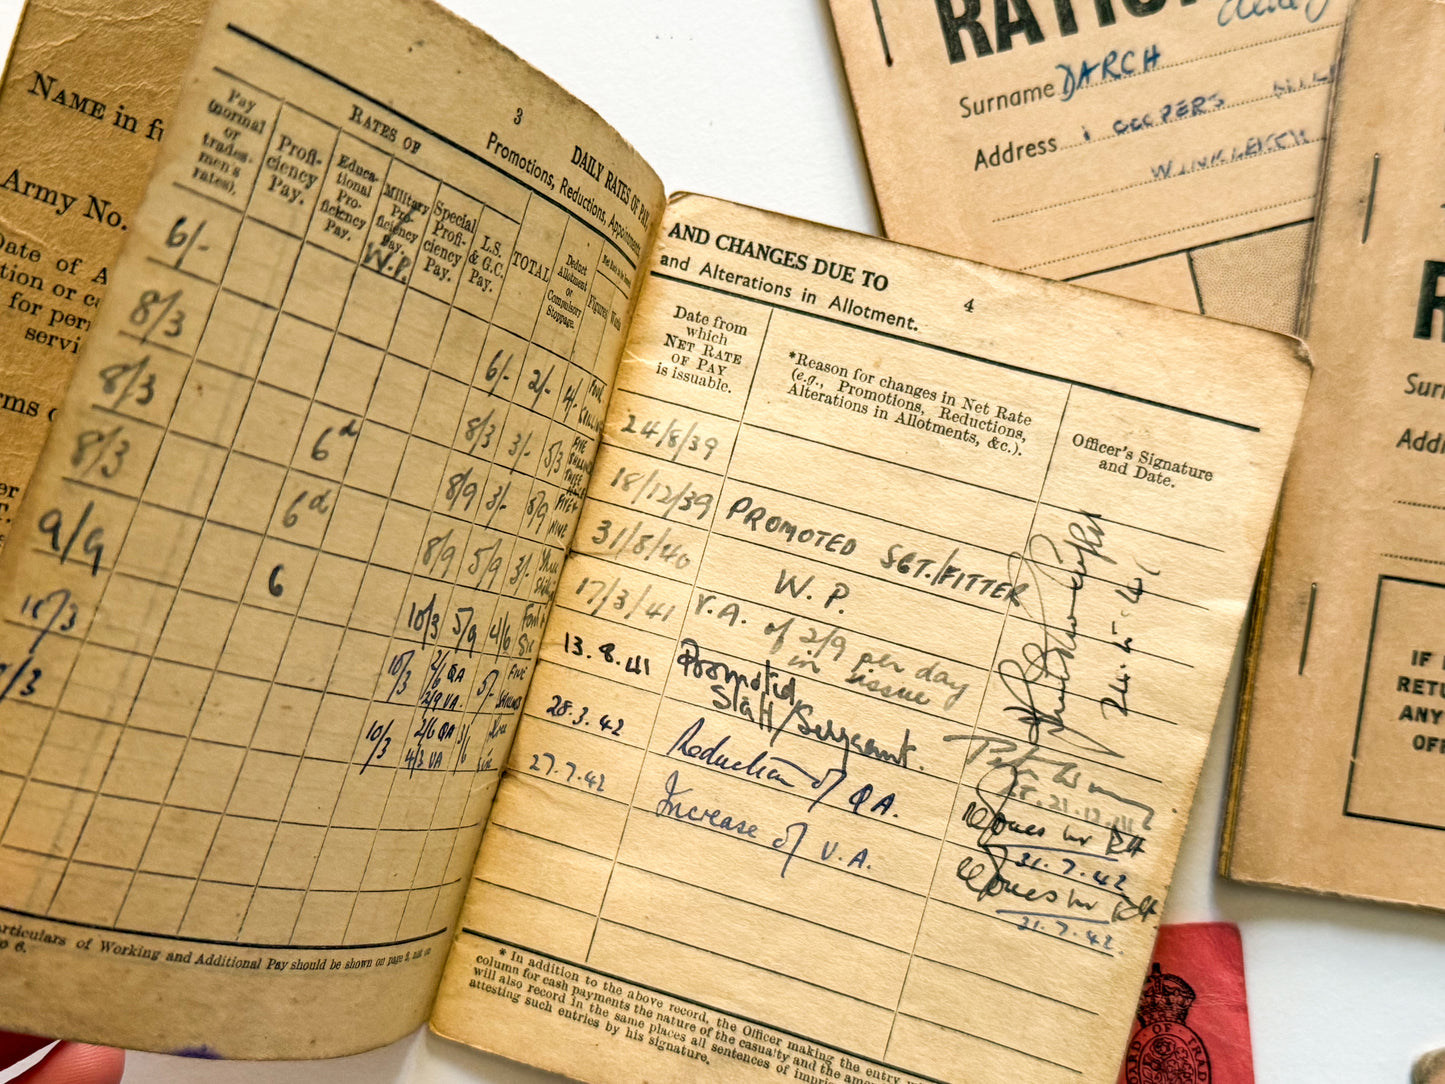 NAME in fu
Army No.
Date of A
3
RATES OF
DAILY RATES OF PAY
Promotions, Reductions, Appointments
Pay
(normal
or
trades-
men's
rates).
Profi-
ciency
Pay.
Educa-
tional
Pro-
ficiency
Pay.
Military
Pro-
ficiency
Pay.
W.P.
Special
Profi-
ciency
Pay.
L.S.
& G.C.
Pay.
TOTAL
Deduct
Allotment
or
Compulsory
Stoppage.
Figures
Words
6/- 6/- 2/- 4/-
8/3 8/3 3/- 5/3
8/3 6d 8/9 3/- 5/9
8/3 6d 8/9 5/9 3/-
9/9 6 10/3 5/9 4/6
10/3 10/3 2/6 QA 2/9 VA. 5/-
10/3 2/6 QA 4/3 VA
articulars of Working and Additional Pay should be shown on page 5, not on
6.
AND CHANGES DUE TO
4
and Alterations in Allotment.
Date from
which
NET RATE
OF PAY
is issuable.
*Reason for changes in Net Rate
(e.g., Promotions, Reductions,
Alterations in Allotments, &c.).
Officer's Signature
and Date.
24/8/39
18/12/39 PROMOTED SGT./FITTER
31/8/40 W.P.
17/3/41 V.A. of 2/9 per day
in issue
13.8.41 Promoted
Staff/Sergeant.
28.3.42 Reduction of QA.
27.7.42 Increase of V.A.
21.12.41
31.7.42
31.7.42
* In addition to the above record, the Officer making the entry
column for cash payments the nature of the casualty and the amo
will also record in the same places all sentences of impris
attesting such entries by his signature.
RATIO
Surname DARCH
Address 1 COOPERS
WINKLEIGH
R
Sur
Addr
IF
RETU
ANY
OFF
BOARD OF TRADE